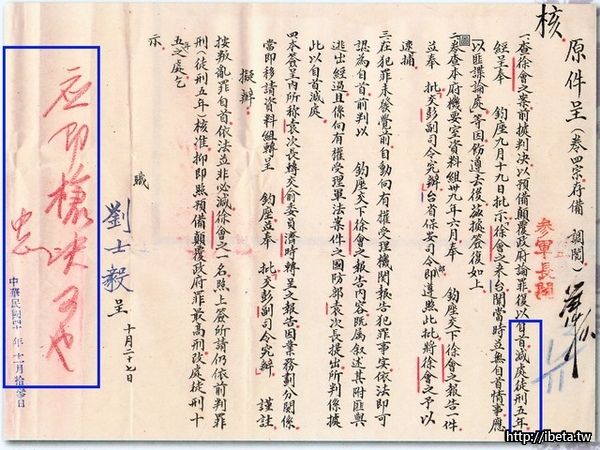 核
原件呈(卷四宗存備 調閱)
參軍長閱
一、查徐會之案前擬判決以預備顛覆政府論罪復以自首減處徒刑五年
經呈奉 鈞座九月十九日批示「徐會之來台關當時並無自首情事應
以匪諜論處」等因飭遵去後茲據簽復如上
二、參查本府機要室資料組卅九年六月奉 鈞座交下徐會之報告一件
並奉 批交彭副司令究辦台省保安司令部即遵照此批將徐會之予以
逮捕
三、在犯罪未發覺前自動向有權受理機關報告犯罪事實依法即可
認為自首前判以 鈞座交下徐會之報告內容既屬敘述其附匪與
逃出經過且係向有權受理軍法案件之國防部袁次長提出所判係援
此以自首減處
四、本簽呈內所稱袁次長轉交前委員濟時轉呈之報告因業務劃分關係
當即移請資料組轉呈 鈞座並奉 批交彭副司令究辦 謹註
擬辦
按叛亂罪自首依法並非必減徐會之一名照上簽所請仍依前判罪
刑(徒刑五年)核准抑即照預備顛覆政府罪最高刑改處徒刑十
五年之處乞
示
職 劉士毅 呈 十月二十七日
應即槍決可也
中華民國 年十一月拾 日
http://ibeta.tw